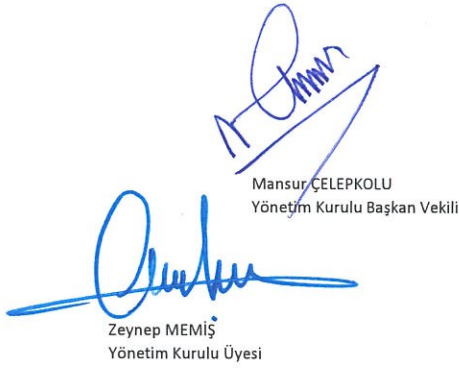 Mansur ÇELEPKOLU
Yönetim Kurulu Başkan Vekili
Zeynep MEMİŞ
Yönetim Kurulu Üyesi